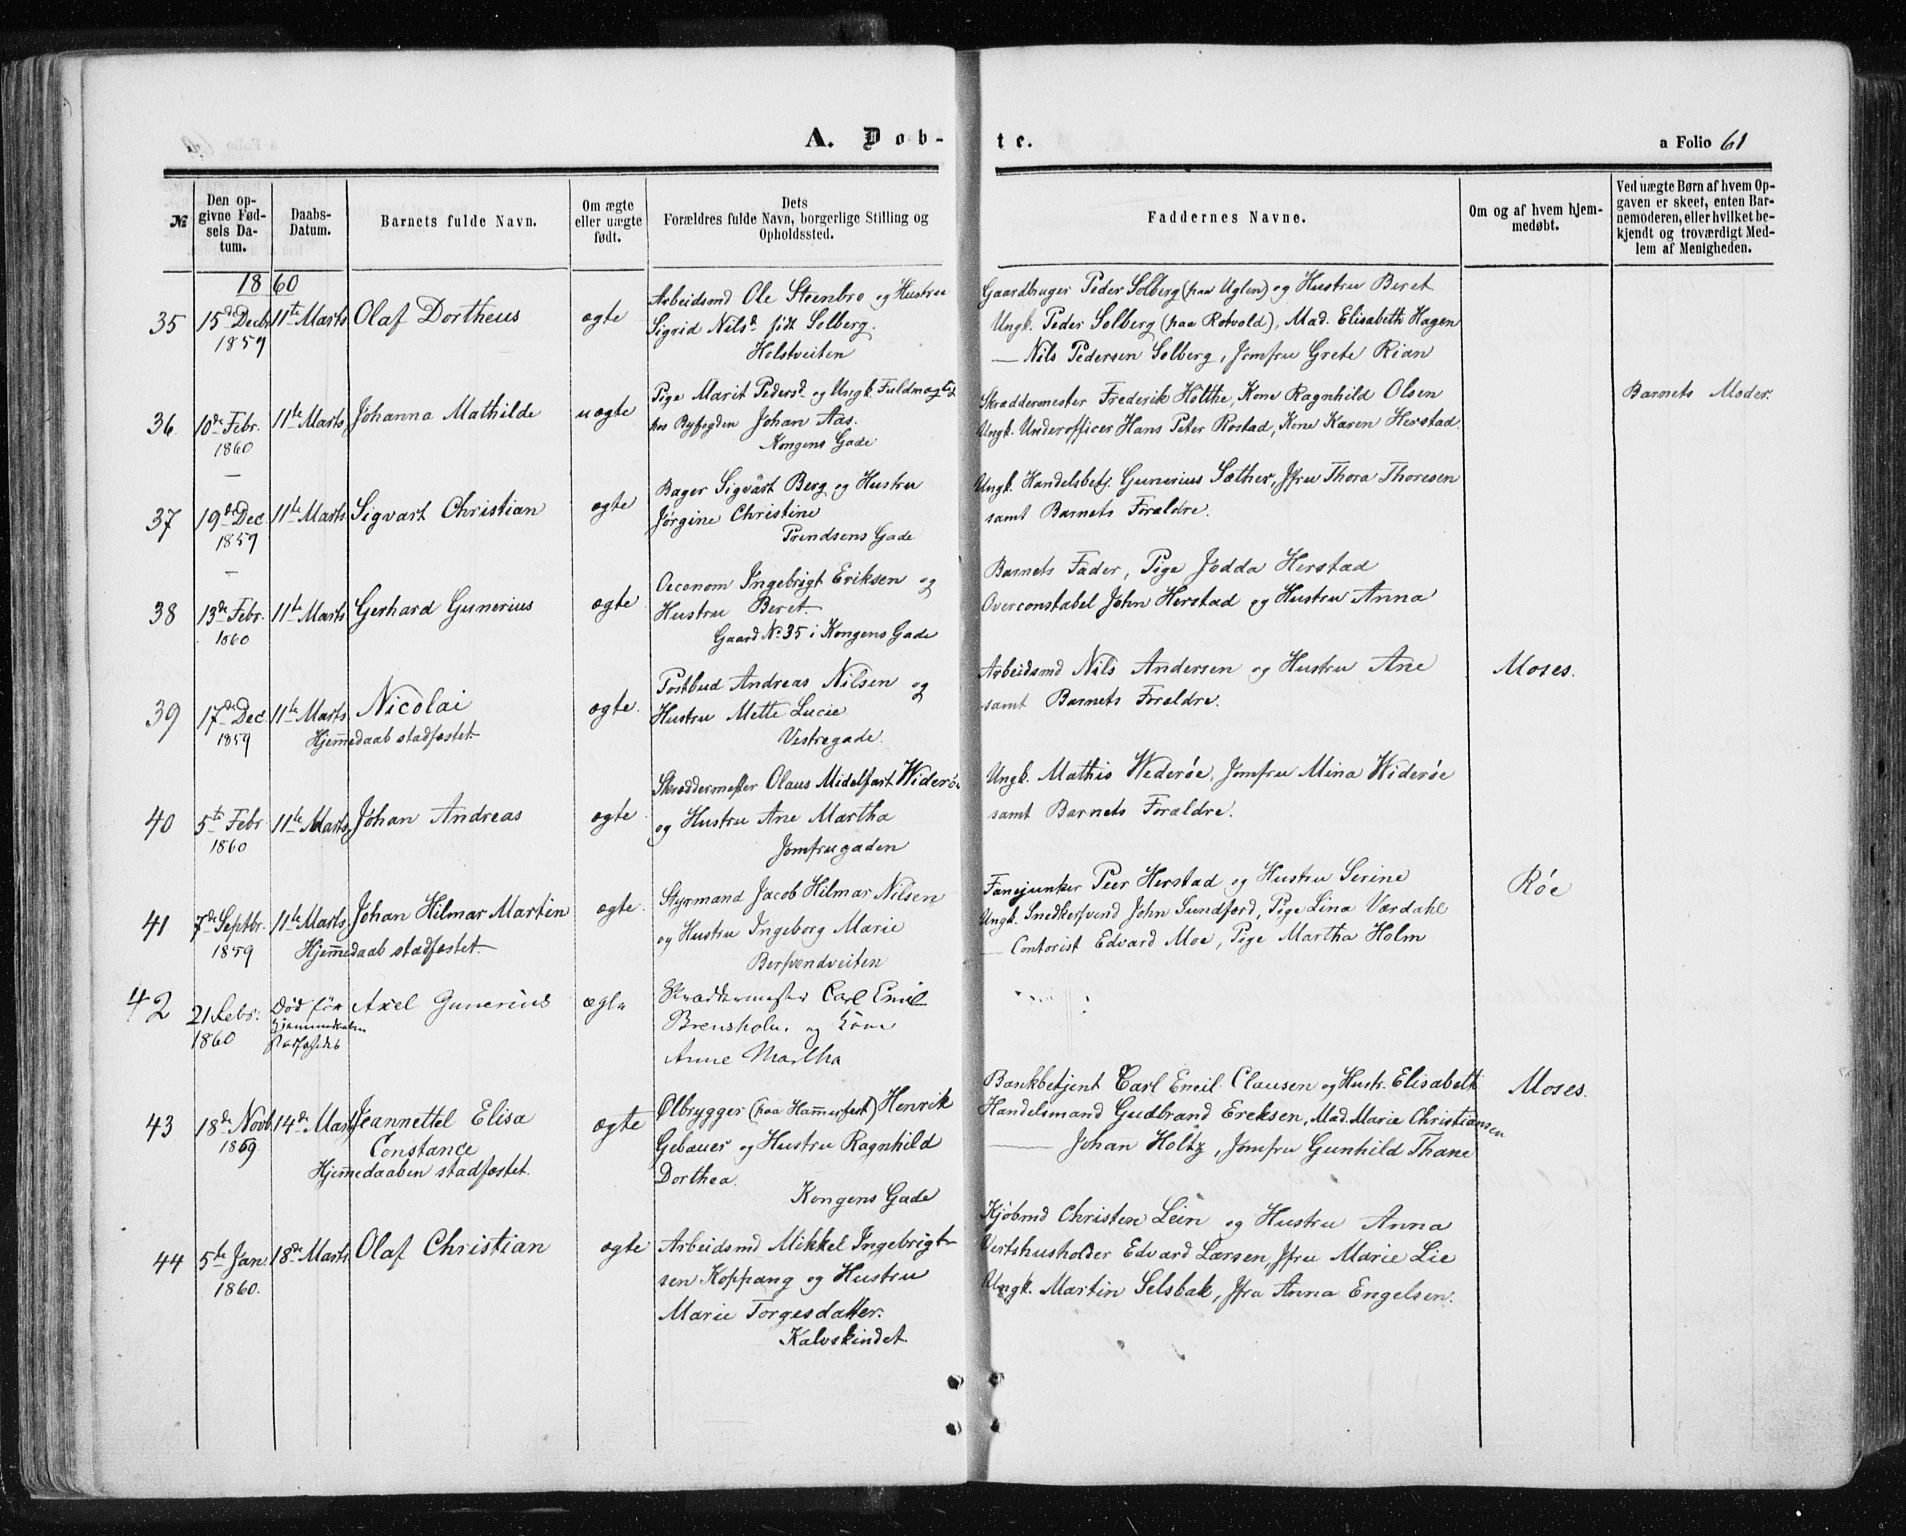 A. Døb-te.
a Folio 61
№
Den opgivne Fødsels Datum.
Daabs-Datum.
Barnets fulde Navn.
Om ægte eller uægte født.
Dets Forældres fulde Navn, borgerlige Stilling og Opholdssted.
Faddernes Navne.
Om og af hvem hjemmedøbt.
Ved uægte Børn af hvem Opgaven er skeet, enten Barnemoderen, eller hvilket bekjendt og troværdigt Medlem af Menigheden.
1860
35 15de Decbr 1859 11te Marts Olaf Dortheus ægte
Arbeidsmd Ole Steenbro og Hustru
Sigrid Nilsd. født Solberg.
Holstveiten
Gaardbruger Peder Solberg (paa Uglen) og Hustru Beret
Ungk. Peder Solberg (paa Rotvold), Mad. Elisabeth Hagen
— Nils Pedersen Solberg, Jomfru Grete Rian
36 10de Febr. 1860 11te Marts Johanna Mathilde uægte
Pige Marit Pedersd. og Ungk. Fuldmægtig
hos Byfogden Johan Aas.
Kongens Gade
Skræddermester Frederik Holthe, Kone Ragnhild Olsen
Ungk. Underofficer Hans Peter Rostad, Kone Karen Herstad.
Barnets Moder.
37 19de Dec 1859 11te Marts Sigvart Christian ægte
Bager Sigvart Berg og Hustru
Jørgine Christine
Prindsens Gade
Ungk. Handelsbetj. Gunerius Sæther, Jfru Thora Thoresen
samt Barnets Forældre.
38 13de Febr. 1860 11te Marts Gerhard Gunerius ægte
Oeconom Ingebrigt Eriksen og
Hustru Beret.
Gaard No. 35 i Kongens Gade
Barnets Fader, Pige Jodda Herstad
Overconstabel John Herstad og Hustru Anna
39 17de Dec. 1859 11te Marts Nicolai ægte.
Hjemmedaab stadfæstet.
Postbud Andreas Nilsen og
Hustru Mette Lucie
Vestregade.
Arbeidsmd Nils Andersen og Hustru Ane
samt Barnets Forældre.
Moses.
40 5te Febr 1860 11te Marts Johan Andreas ægte
Skræddermester Olaus Midelfart Widerøe
og Hustru Ane Martha
Jomfrugaden
Ungk. Mathis Wederøe, Jomfru Mina Widerøe
samt Barnets Forældre.
41 7de Septbr. 1859 11te Marts Johan Hilmar Martin ægte.
Hjemmedaab stadfæstet.
Styrmand Jacob Hilmar Nilsen
og Hustru Ingeborg Marie
Bersvendveiten
Fanejunker Peer Herstad og Hustru Serine
Ungk. Snedkersvend John Sundfærd, Pige Lina Værdahl
— Contorist Edvard Moe, Pige Martha Holm
Røe
42 21 Febr. 1860 Død før Hjemmedaaben stadfæstedes Axel Gunerius ægte
Skræddermester Carl Emil
Brensholm og Kone
Anne Martha
43 18de Novb. 1859 14de Marts Jeannettel Elisa ægte
Constance
Hjemmedaaben stadfæstet.
Ølbrygger (paa Hammerfest) Henrik
Gebauer og Hustru Ragnhild
Dorthea.
Kongens Gade
Bankbetjent Carl Emil Clausen og Hustr. Elisabeth
Handelsmand Gudbrand Ereksen, Mad. Marie Christiansen
— Johan Holtz, Jomfru Gunhild Thane
Moses.
44 5te Jan. 1860. 18de Marts Olaf Christian ægte
Arbeidsmd Mikkel Ingebrigt-
sen Koppang og Hustru
Marie Torgesdatter.
Kalvskindet
Kjøbmd Christen Lein og Hustru Anna
Vertshusholder Edvard Larsen, Jfru Marie Lie
Ungk. Martin Selsbak, Jfru Anna Engelsen.